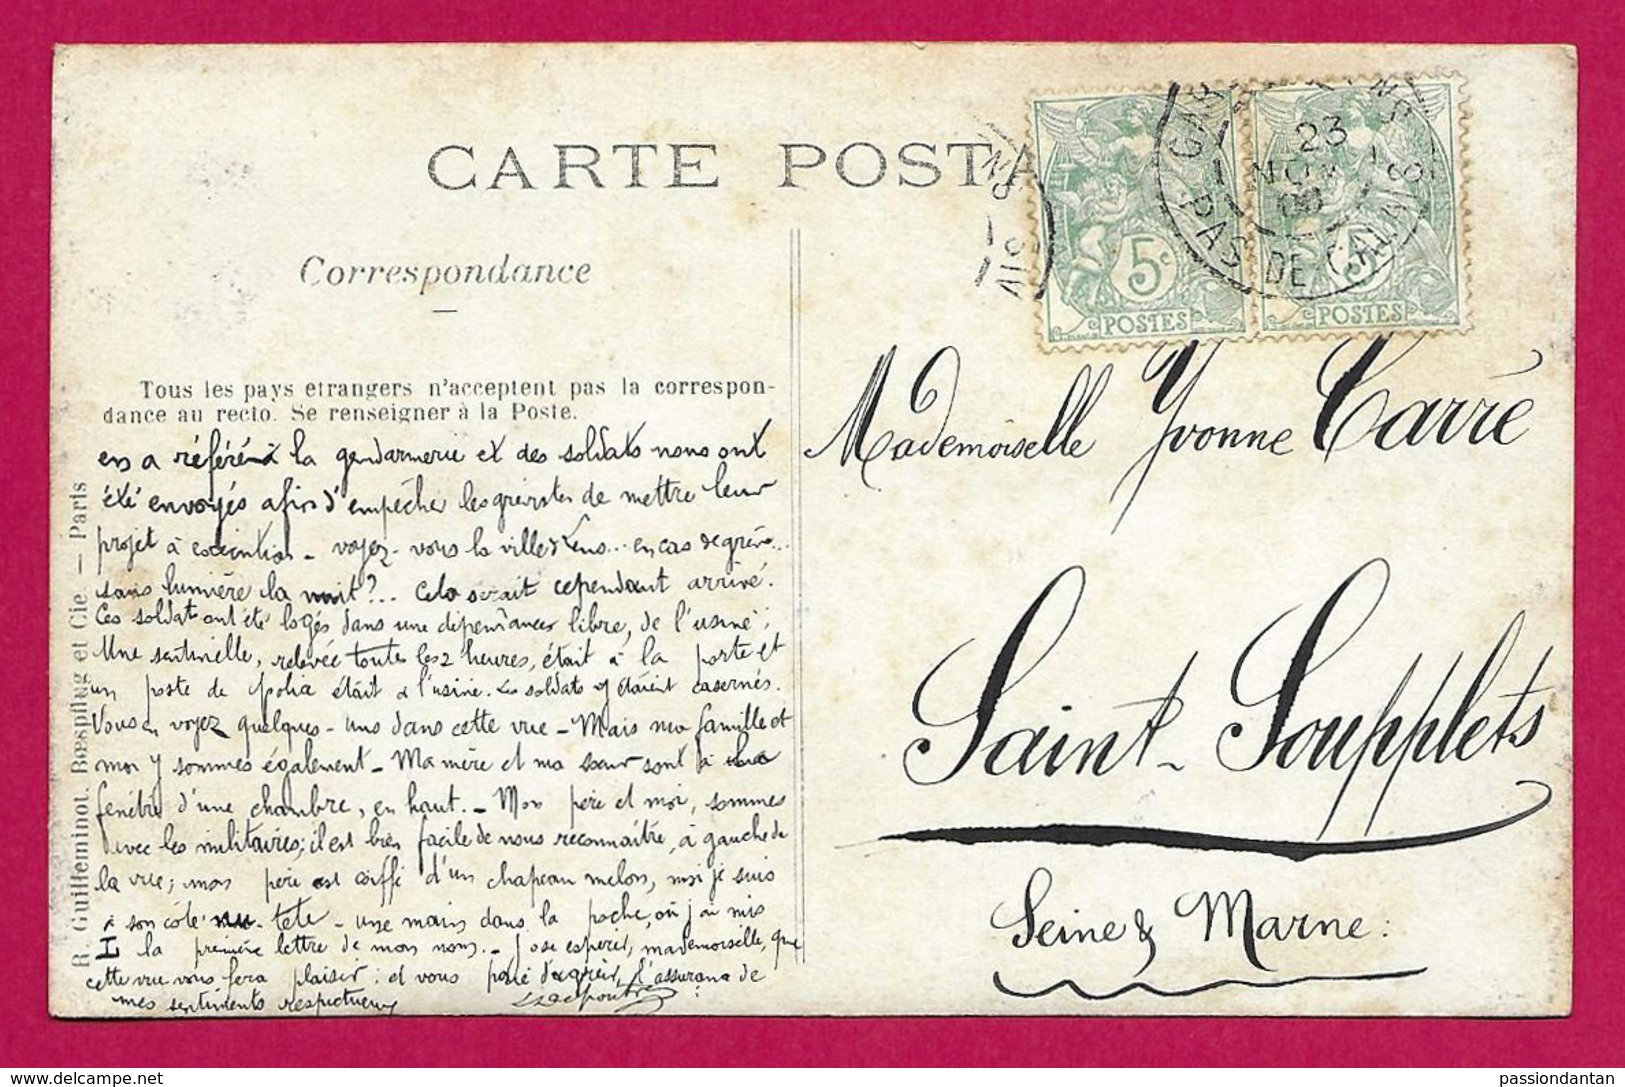 CARTE POSTA
Correspondance
Tous les pays etrangers n'acceptent pas la correspon-
dance au recto. Se renseigner à la Poste.
en a référé à la gendarmerie et des soldats nous ont
été envoyés afin d'empêcher les grévistes de mettre leur
projet à exécution - voyez-vous la ville de Lens... en cas de grève...
sans lumière la nuit?... Cela serait cependant arrivé.
Ces soldats ont été logés dans une dépendance libre, de l'usine;
Une sentinelle, relevée toutes les 2 heures, était à la porte et
un poste de était à l'usine. Les soldats y étaient casernés.
Vous en voyez quelques-uns dans cette vue - Mais ma famille et
moi y sommes également - Ma mère et ma sœur sont à la
fenêtre d'une chambre, en haut. - Mon père et moi, sommes
avec les militaires; il est bien facile de nous reconnaître, à gauche de
la vue; mon père est coiffé d'un chapeau melon, moi je suis
à son côté nu-tête - une main dans la poche, où j'ai mis
I la première lettre de mon nom. - J'ose espérer, mademoiselle, que
cette vue vous fera plaisir: et vous prie d'agréer, l'assurance de
mes sentiments respectueux
R. Guilleminot. Bœspflug et Cie. — Paris
5c
POSTES
POSTES
23
NOV
PAS DE CALAIS
Mademoiselle Yvonne Carré
Saint-Soupplets
Seine & Marne:
passiondantan